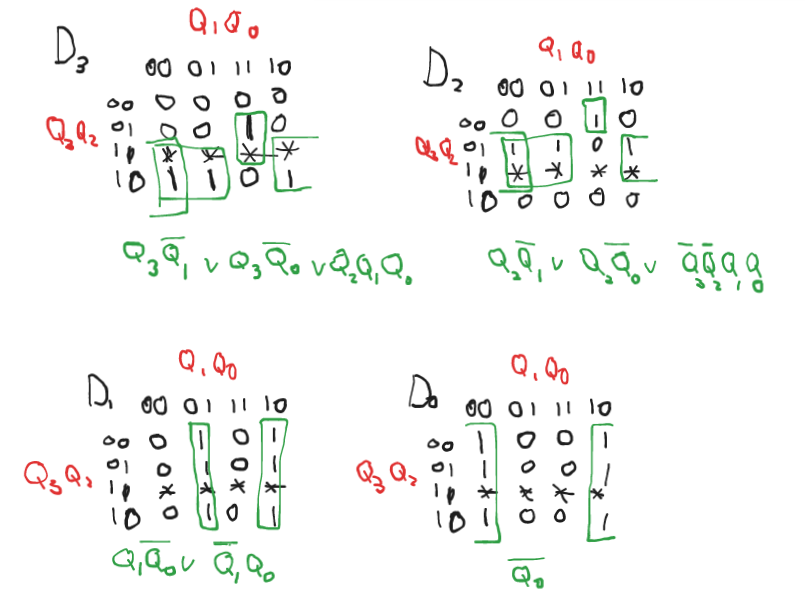 D₃
Q₁Q₀
00 01 11 10
Q₃Q₂
00 0 0 0 0
01 0 0 1 0
11 * * * *
10 1 1 0 1
Q₃Q̅₁ ∨ Q₃Q̅₀ ∨ Q₂Q₁Q₀
D₂
Q₁Q₀
00 01 11 10
Q₃Q₂
00 0 0 1 0
01 1 1 0 1
11 * * * *
10 0 0 0 0
Q₂Q̅₁ ∨ Q₂Q̅₀ ∨ Q̅₃Q̅₂Q₁Q₀
D₁
Q₁Q₀
00 01 11 10
Q₃Q₂
00 0 1 0 1
01 0 1 0 1
11 * * * *
10 0 1 0 1
Q₁Q̅₀ ∨ Q̅₁Q₀
D₀
Q₁Q₀
00 01 11 10
Q₃Q₂
00 1 0 0 1
01 1 0 0 1
11 * * * *
10 1 0 0 1
Q̅₀